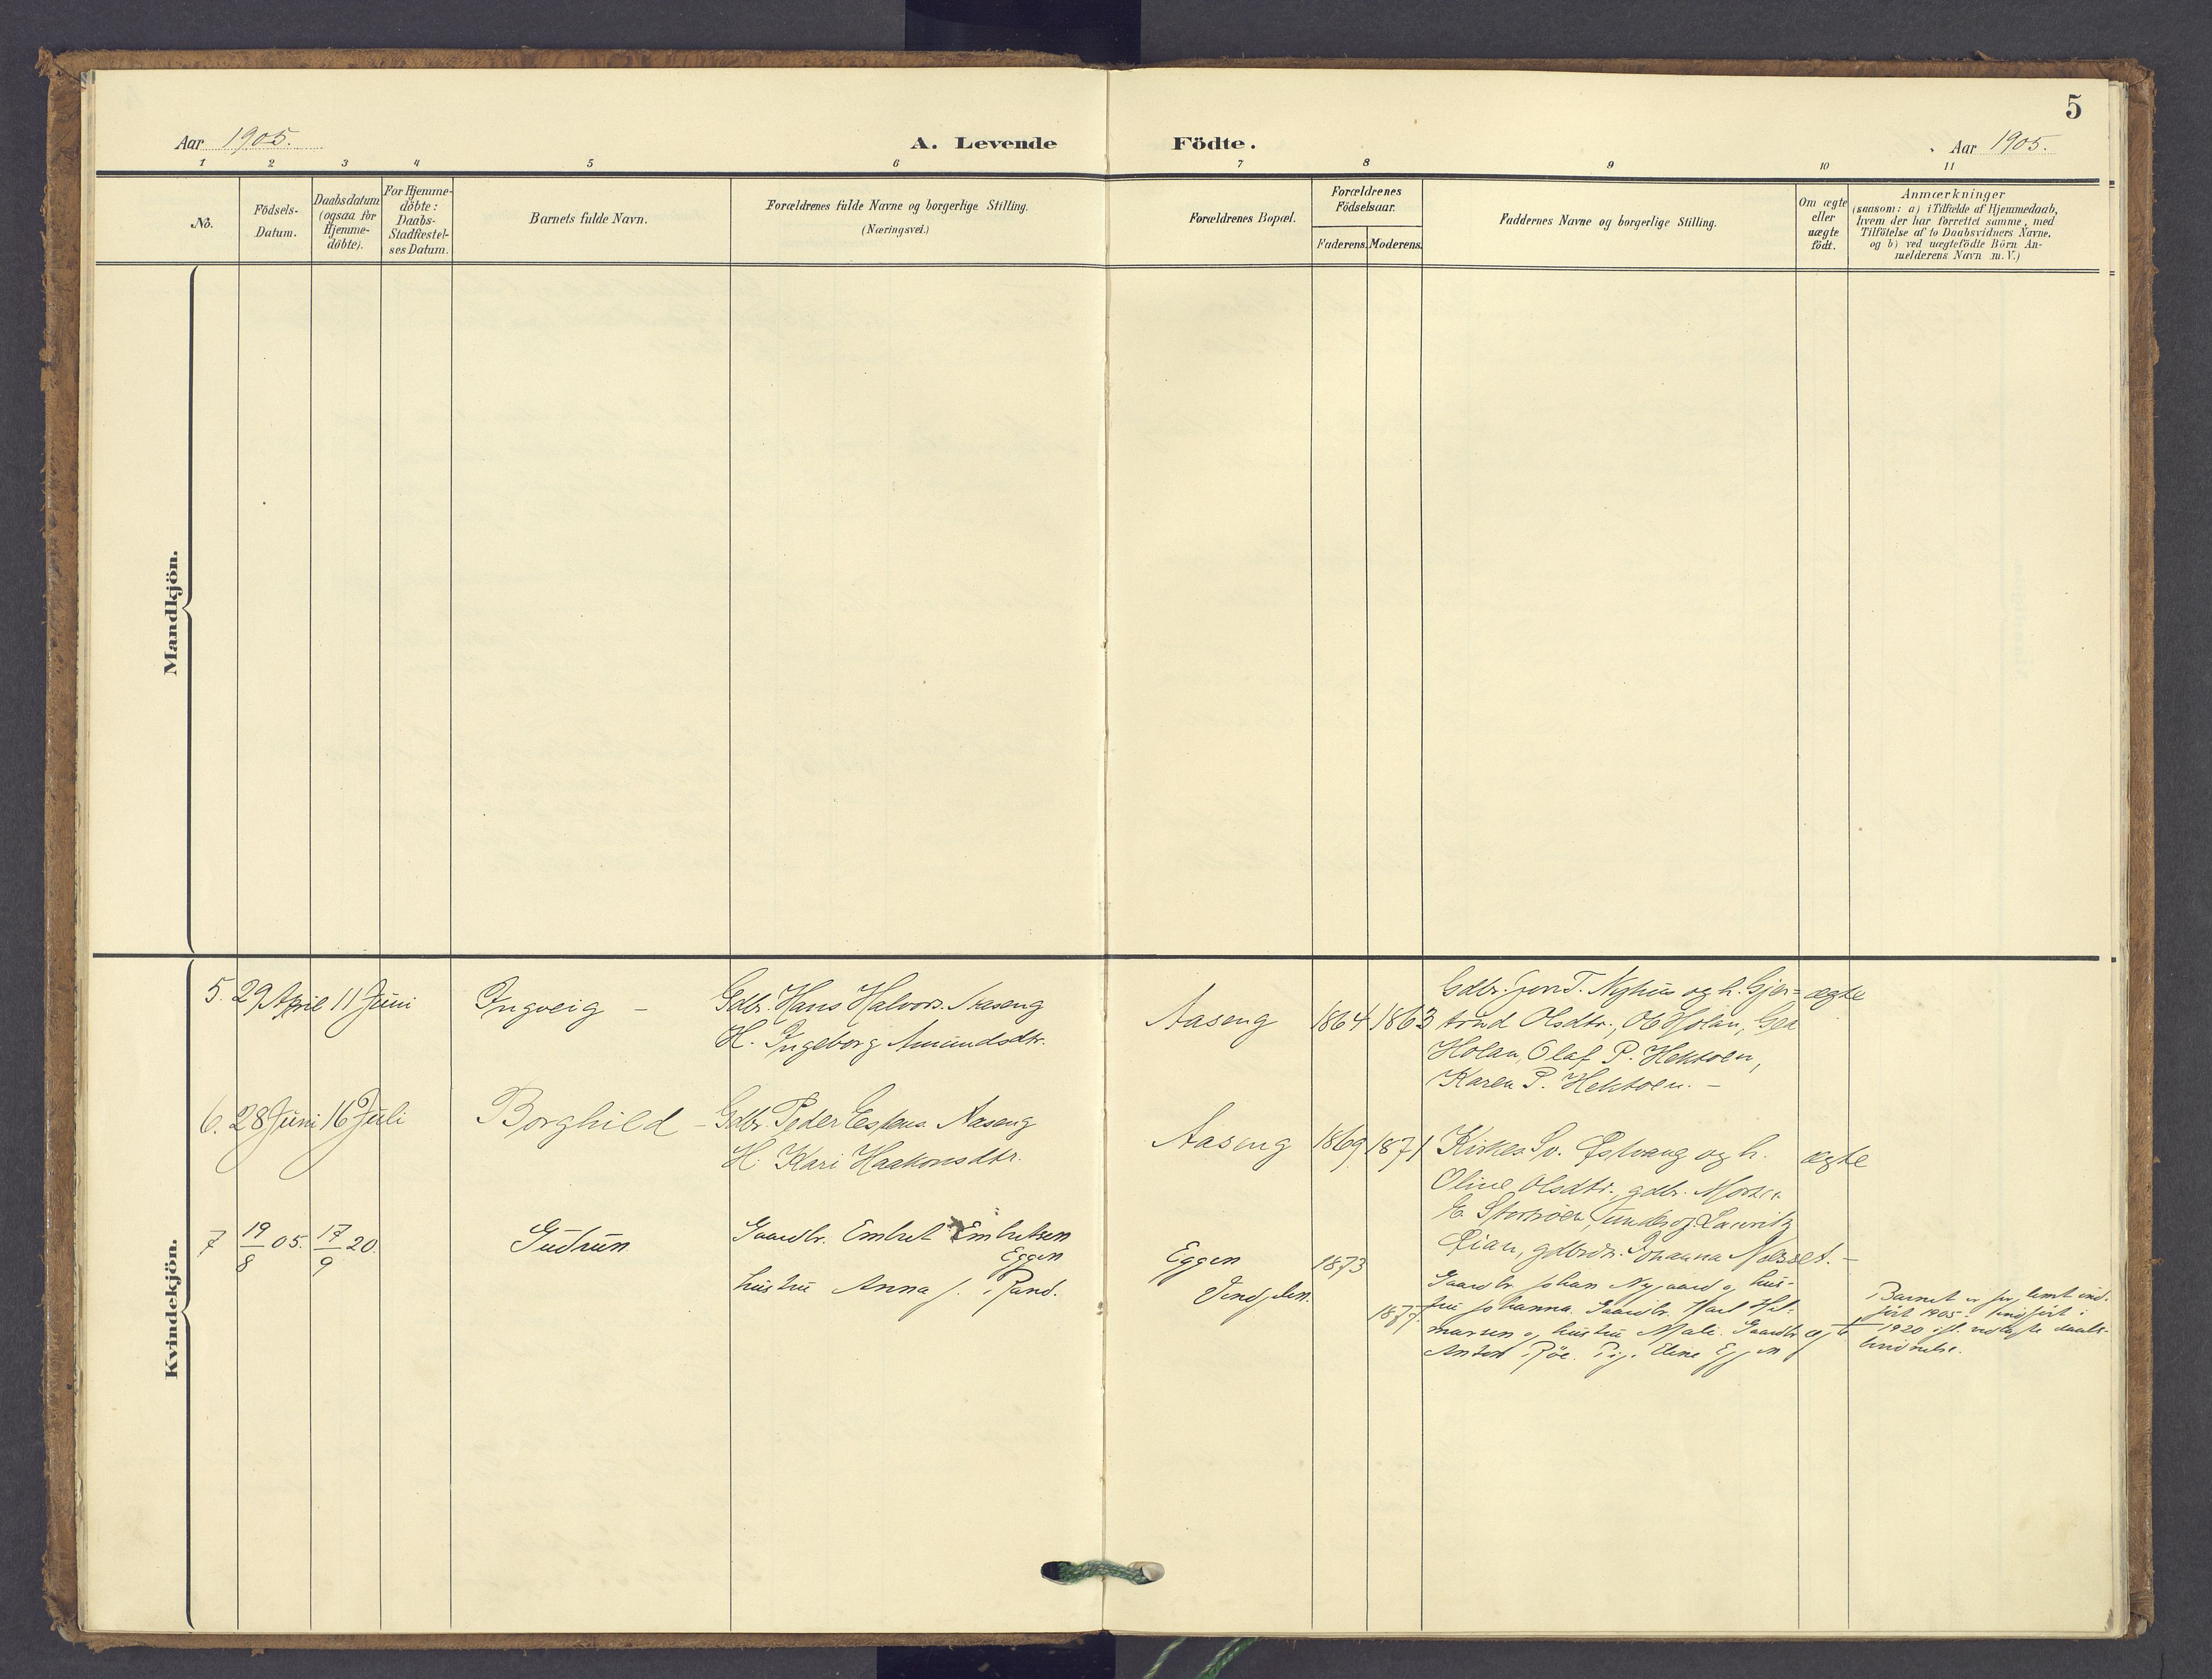 5
Aar 1905.
A. Levende Födte.
Aar 1905.
1 2 3 4 5 6 7 8 9 10 11
No.
Födsels-
Datum.
Daabsdatum
(ogsaa for
Hjemme-
döbte).
For Hjemme-
döbte:
Daabs-
Stadfæstel-
ses Datum.
Barnets fulde Navn.
Forældrenes fulde Navne og borgerlige Stilling.
(Næringsvei.)
Forældrenes Bopæl.
Forældrenes
Födselsaar.
Faderens. Moderens.
Faddernes Navne og borgerlige Stilling.
Om ægte
eller
uægte
födt.
Anmærkninger
(saasom: a) i Tilfælde af Hjemmedaab,
hvem der har forrettet samme, med
Tilföielse af to Daabsvidners Navne,
og b) ved uægtefödte Börn An-
melderens Navn m. V.)
Mandkjön.
Kvindekjön.
5. 29 April 11 Juni
Ingveig –
Gdbr. Hans Halvors. Aaseng
H. Ingeborg Amundsdtr.
Aaseng
1864 1863
Gdbr. Jon T. Nyhus og h. Gjer-
trud Olsdtr., Ole Holan,
Holan, Olaf P. Hektoen,
Karen P. Hektoen. –
ægte
6. 28 Juni 16 Juli
Borghild –
Gdbr. Peder Estens. Aaseng
H. Kari Haakonsdtr.
Aaseng
1869 1871
Kirkes. Østvang og h.
Oline Olsdtr., gdbr. Morten
E. Storrøen, Lauritz
Øian, gdbrdtr. Johanna Næsset. –
ægte
7 19/8 05. 17/9 20.
Gudrun
Gaardbr. Embret Embretsen
Eggen
hustru Anna f. Rand.
Eggen
1873
1877.
Gaardbr. Johan Nygaard og hus-
tru Johanna. Gaardbr. Karl Hil-
marsen og hustru Mali. Gaardbr.
Anton Røe. Pige Eline Eggen
ægte
Barnet er ind-
ført 1905. Indført i
1920 ifl. vedlagte daabs-